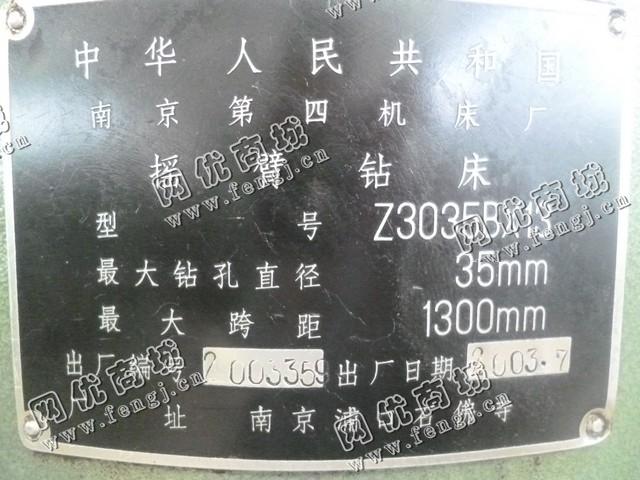 中华人民共和国
南京第四机床厂
摇臂钻床
型号 Z3035B
最大钻孔直径 35mm
最大跨距 1300mm
出厂编号 003359 出厂日期 2003.7
址 南京浦
网优商城
www.fengj.cn
网优商城
www.fengj.cn
网优商城
www.fengj.cn
网优商城
www.fengj.cn
网优商城
www.fengj.cn